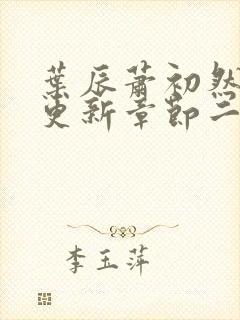 葉辰蕭初然
更新章節二
李玉萍